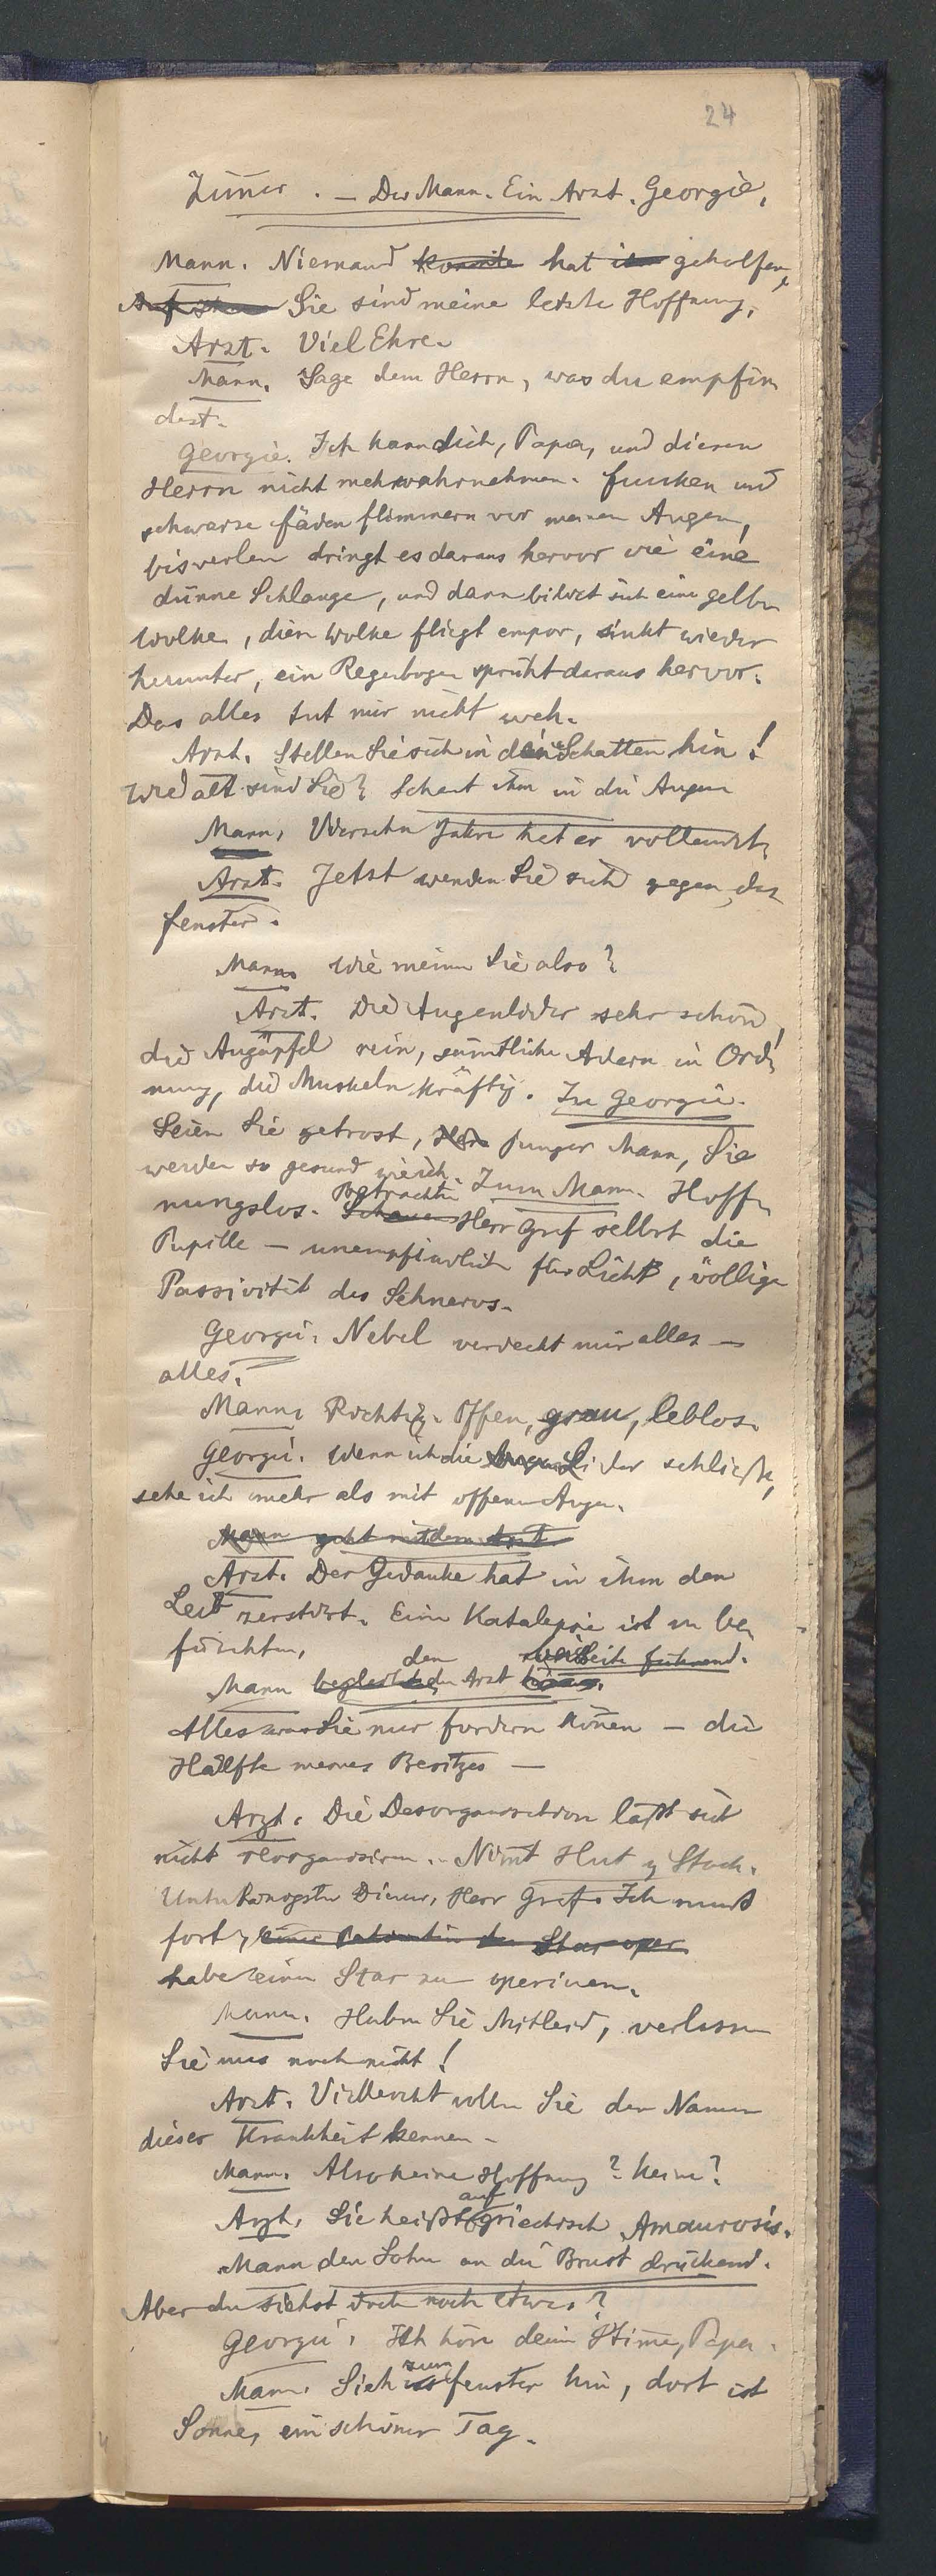 24
Zimer. — Der Mann. Ein Arzt. Georgie.
Mann. Niemand konnte hat ihm geholfen,
Sie sind meine letzte Hoffnung.
Arzt. Viel Ehre.
Mann. Sage dem Herrn, was du empfin
dest.
Georgie. Ich kann dich, Papa, und diesen
Herrn nicht mehr wahrnehmen. Funken und
schwarze Fäden flimmern vor meinen Augen,
bisweilen dringt es daraus hervor wie eine
dünne Schlange, und dann bildet sich eine gelbe
Wolke, diese Wolke fliegt empor, sinkt wieder
herunter, ein Regenbogen sprüht daraus hervor.
Das alles tut mir nicht weh.
Arzt. Stellen Sie sich in den Schatten hin!
Wie alt sind Sie? Schaut ihm in die Augen
Mann. Vierzehn Jahre hat er vollendet.
Arzt. Jetzt wenden Sie sich gegen das
Fenster.
Mann. Wie meinen Sie also?
Arzt. Die Augenlider sehr schön,
die Augäpfel rein, sämtliche Adern in Ord
nung, die Muskeln kräftig. Zu Georgie.
Seien Sie getrost, Herr junger Mann, Sie
werden so gesund wie ich. Zum Mann. Hoff
nungslos. Schauen Betrachten Herr Graf selbst die
Pupille — unempfindlich für Licht, völlige
Passivität des Sehnervs.
Georgie. Nebel verdeckt mir alles —
alles.
Mann. Richtig. Offen, grau, leblos.
Georgie. Wenn ich die Augen Lider schließe,
sehe ich mehr als mit offenen Augen.
Mann geht mit dem Arzt
Arzt. Der Gedanke hat in ihm den
Leib zerstört. Eine Katalepsie ist zu be
fürchten.
Mann den Arzt beiseite führend.
Alles was Sie nur fordern könen — die
Hälfte meines Besitzes —
Arzt. Die Desorganisation läßt sich
nicht reorganisieren. Nimt Hut u Stock.
Untertänigster Diener, Herr Graf. Ich muß
fort, eine Patientin den Star oper
habe einen Star zu operieren.
Mann. Haben Sie Mitleid, verlassen
Sie uns noch nicht!
Arzt. Vielleicht wollen Sie den Namen
dieser Krankheit kennen —
Mann. Also keine Hoffnung? Keine?
Arzt. Sie heißt auf griechisch Amaurosis.
Mann den Sohn an die Brust drückend.
Aber du siehst doch noch etwas?
Georgie. Ich höre deine Stime, Papa.
Mann. Sieh zum Fenster hin, dort ist
Sonne, ein schöner Tag.